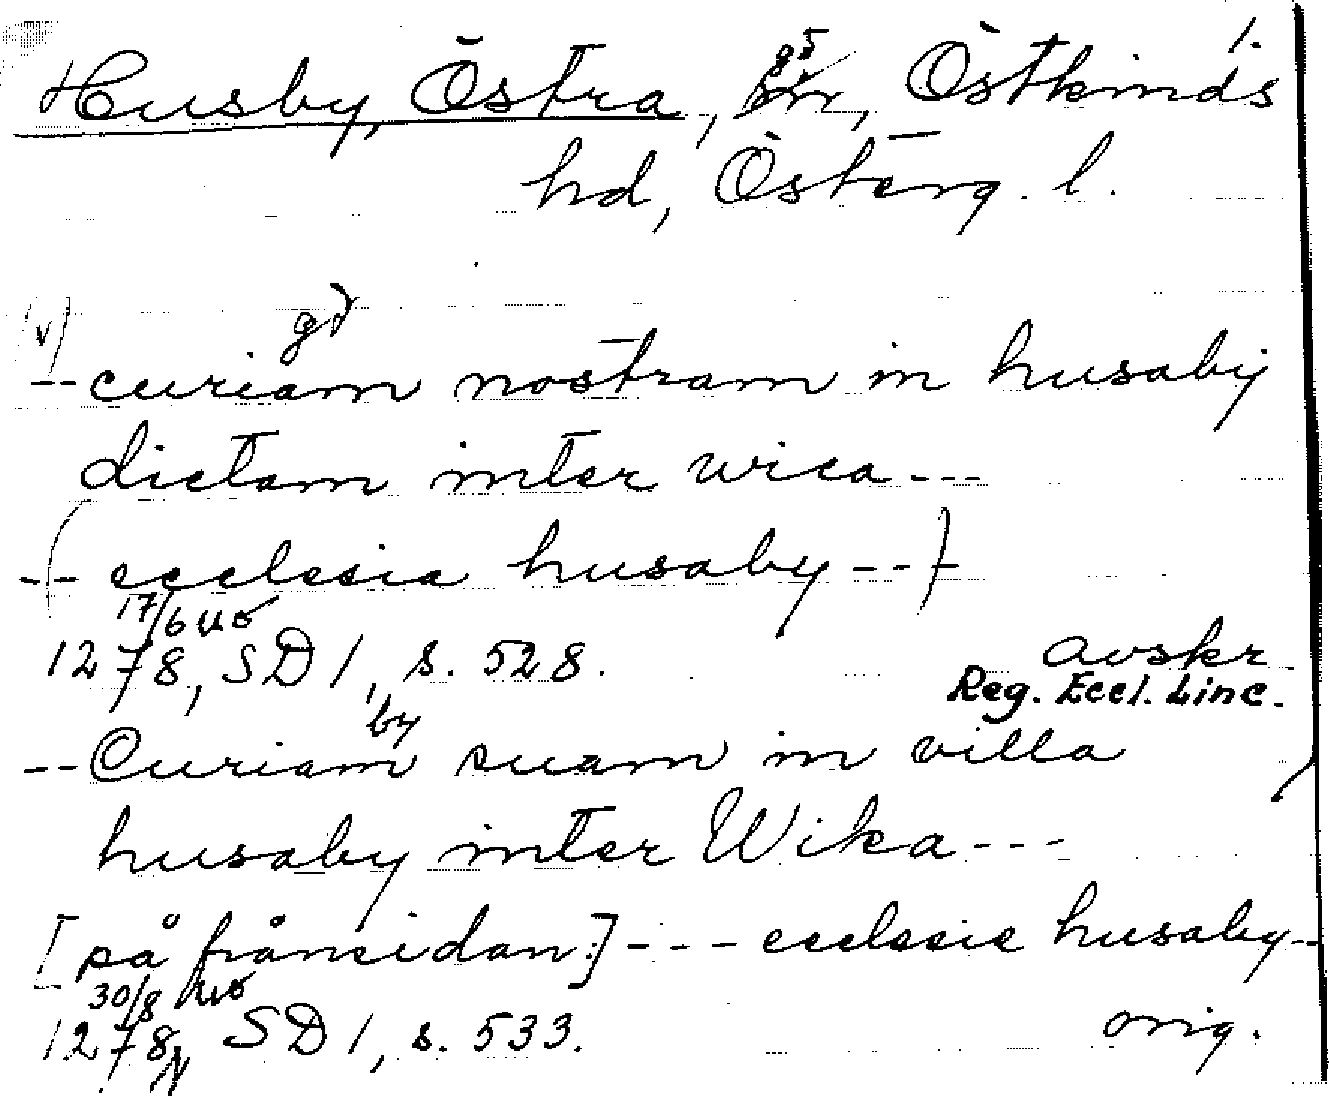 1.
Husby, Östra, sn, Östkinds
hd, Österg. l.
(v) gd
-- curiam nostram in husaby
dictam inter wica ---
(-- ecclesia husaby --)
17/6
1278, SD 1, s. 528. avskr.
Reg. Eccl. Linc.
by
-- Curiam suam in villa
husaby inter Wika ---
[på frånsidan:] --- ecclesie husaby --
30/8
1278, SD 1, s. 533. orig.